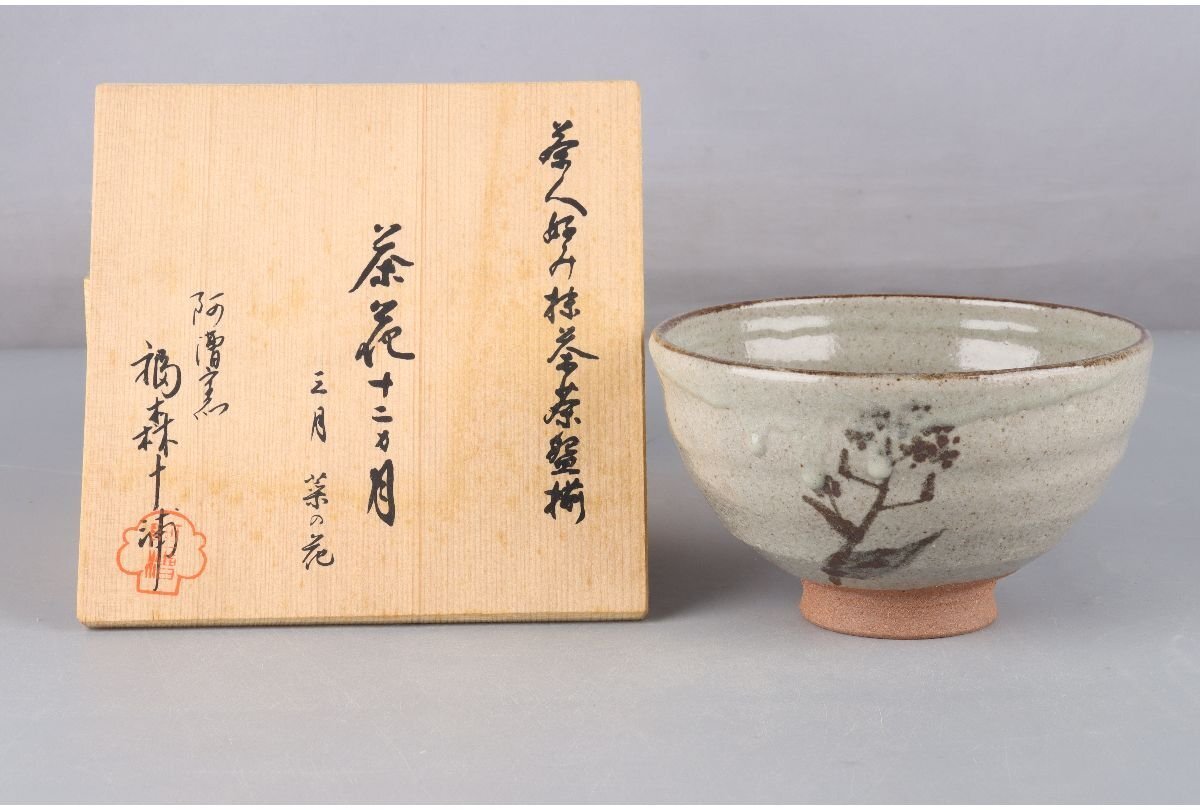 茶人好み抹茶茶盌揃
茶花十二カ月
三月 菜の花
阿漕窯
福森十浦